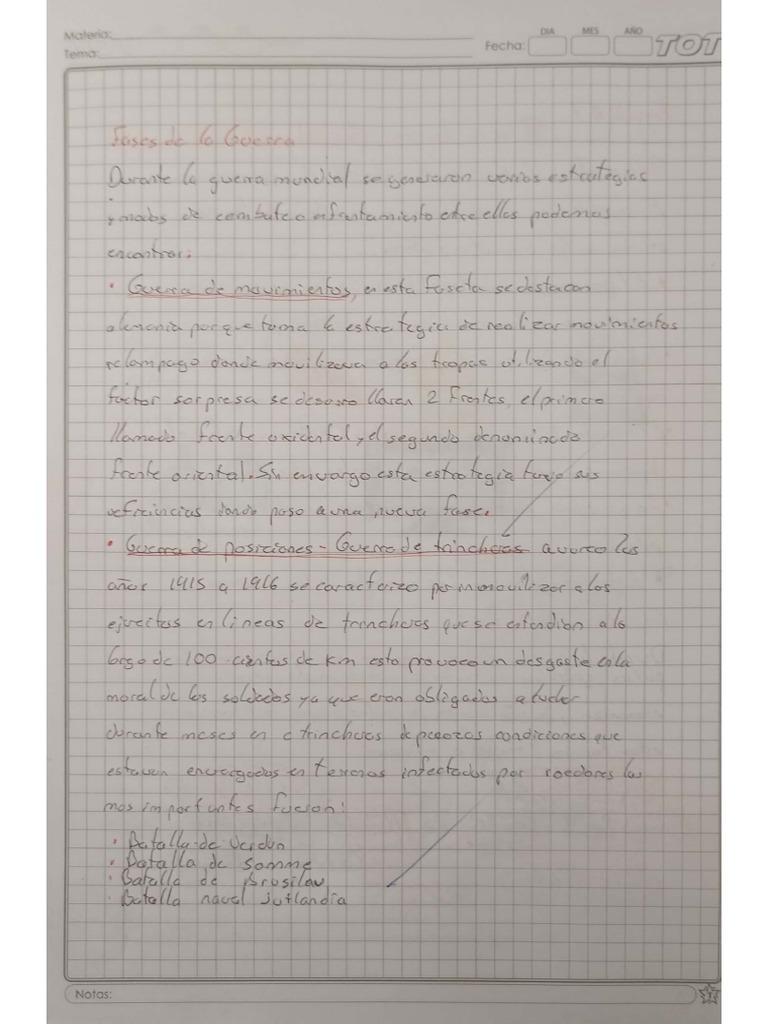 Materia:
Tema:
Fecha:
DIA MES AÑO
TOT
Fases de la Guerra
Durante la guerra mundial se generaron varias estrategias
y modos de combate o enfrentamiento entre ellos podemos
encontrar:
• Guerra de movimientos, en esta fase se destacan
alemania porque toma la estrategia de realizar movimientos
relampago donde movilizava a las tropas utilizando el
factor sorpresa se desarro llaran 2 frentes, el primero
llamado frente oxidental, y el segundo denominado
frente oriental. Sin envargo esta estrategia tuvo sus
deficiencias dando paso a una nueva fase.
• Guerra de posiciones - Guerra de trincheras
años 1915 a 1916 se caracterizo por inmovilizar a los
ejercitos en lineas de trincheras que se extendian a lo
largo de 100 cientos de Km esto provoco un desgaste en la
moral de los soldados ya que eran obligados a luchar
durante meses en trincheras de condiciones que
estavan en terrenos infectados por roedores las
mas importantes fueron:
• Batalla de Verdun
• Batalla de Somme
• Batalla de Brusilav
• Batalla naval Jutlandia
Notas: